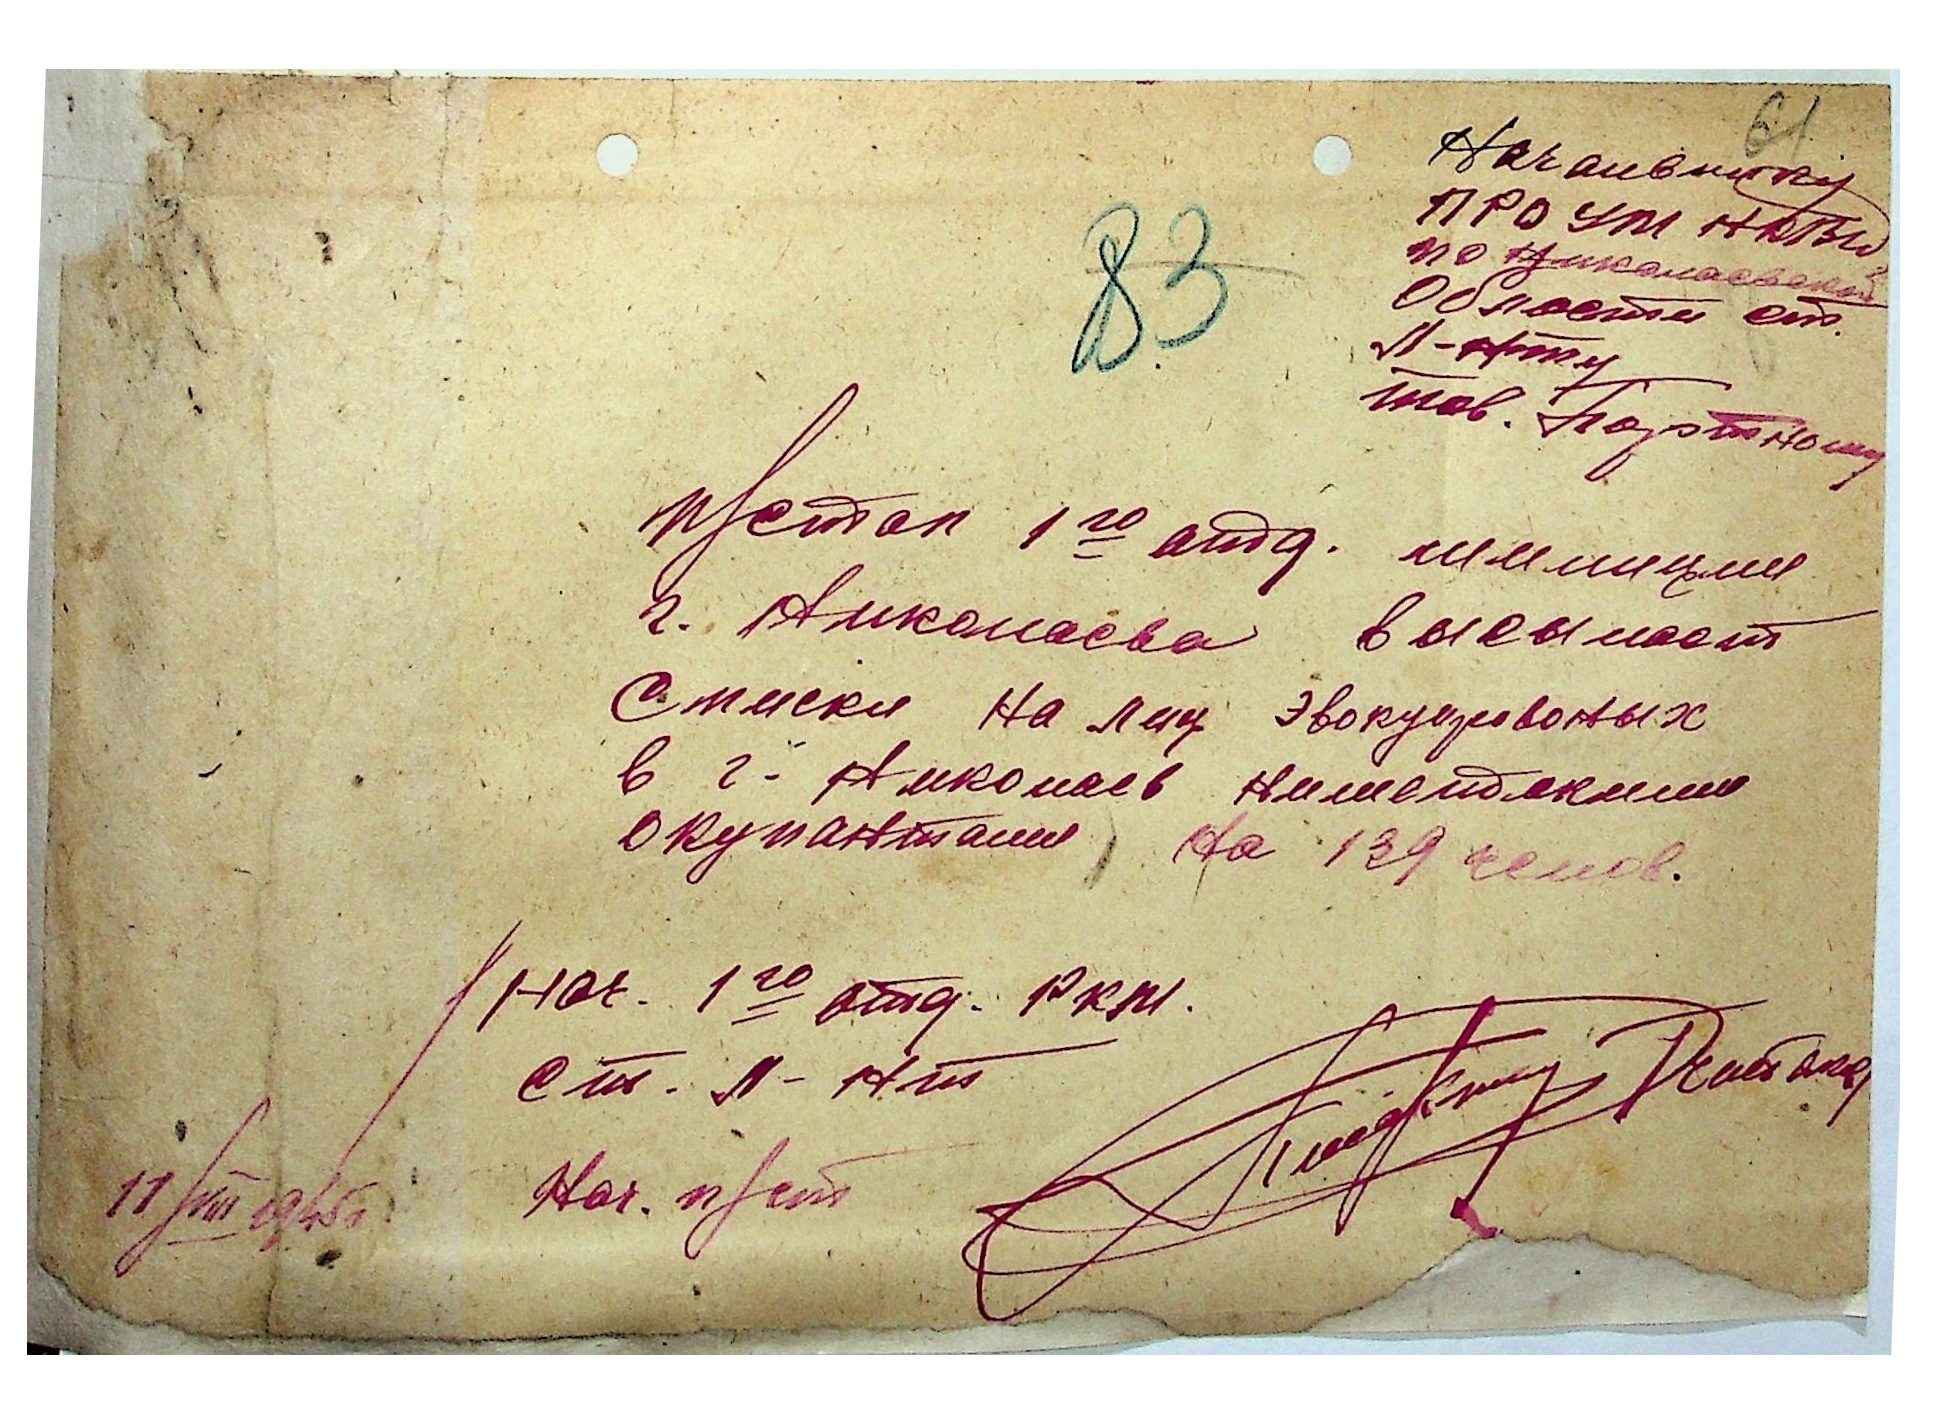 61
Начальнику
ПРО УМ НКВД
по Николаевской
Области ст.
Л-нту
тов. Портному
В3
п/стол 1го отд. милиции
г. Николаева высылает
Списки на лиц эвокуированых
в г. Николаев нимецкими
окупантами на 139 челов.
Нач. 1го отд. РКМ.
ст. Л-нт
Нач. п/ст